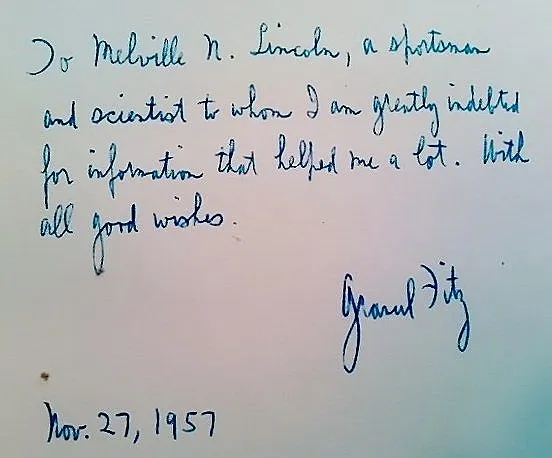 To Melville N. Lincoln, a sportsman
and scientist to whom I am greatly indebted
for information that helped me a lot. With
all good wishes.
Grancel Fitz
Nov. 27, 1957